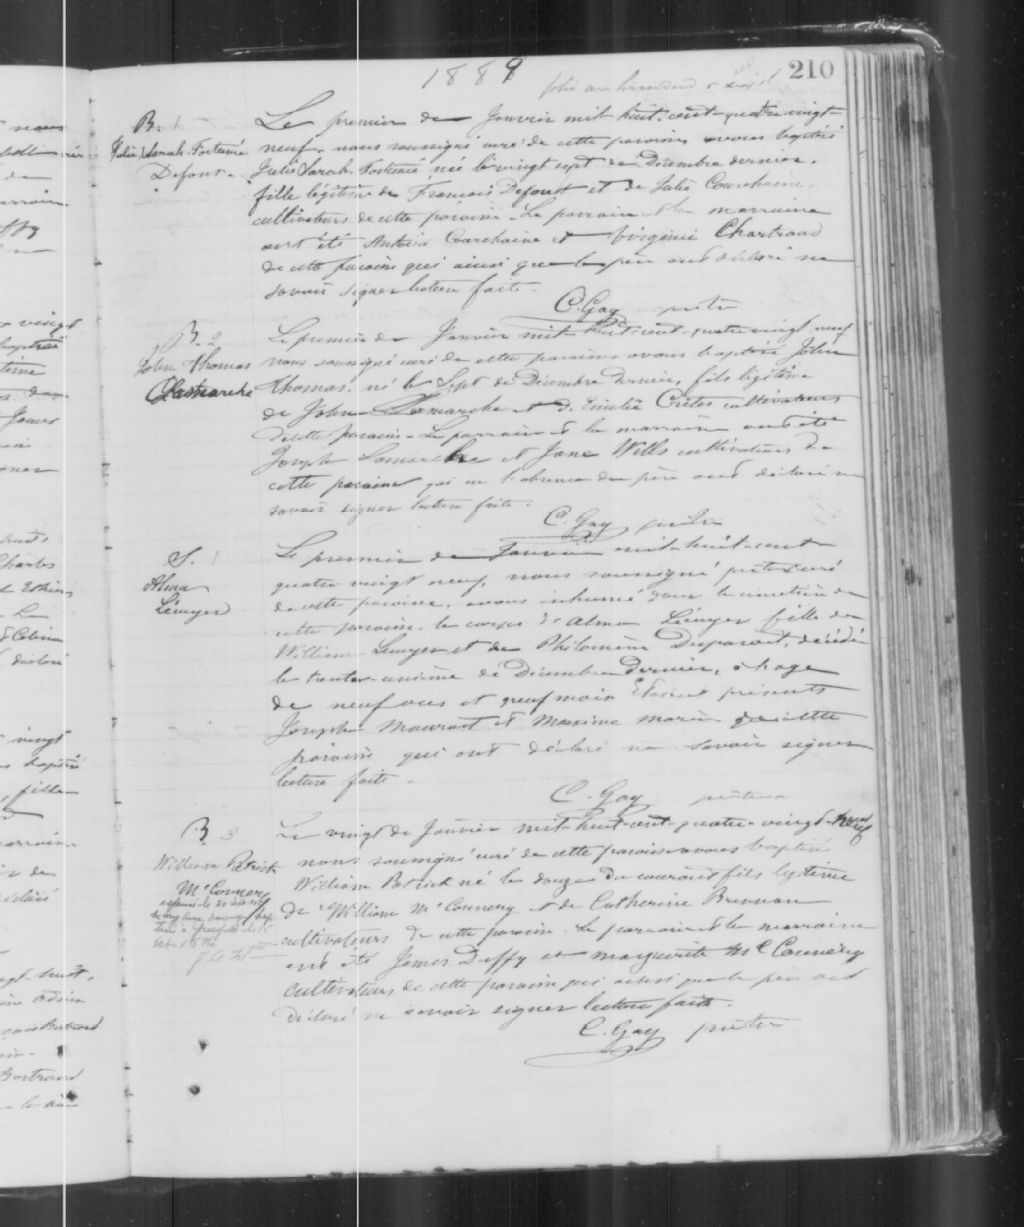 1889
210
folio
B. 1
Julie Sarah Fortunée
Defont
Le premier de Janvier mil huit-cent-quatre vingt-
neuf, nous soussigné curé de cette paroisse avons baptisé
Julie Sarah Fortuné née le vingt sept de Décembre dernier,
fille légitime de Francois Defont et de Julie Courchaine
cultivateurs de cette paroisse. Le parrain et la marraine
ont été Antoine Courchaine et Virginie Chartrand
de cette paroisse qui ainsi que le père ont déclaré ne
savoir signer lecture faite.
C. Gay prêtre
B. 2
John Thomas
Lamarche
Le premier de Janvier mil huit-cent-quatre vingt-neuf
nous soussigné curé de cette paroisse avons baptisé John
Thomas, né le Sept de Décembre dernier, fils légitime
de John Lamarche et d. Emélie Crêtes cultivateurs
de cette paroisse. Le parrain et la marraine ont été
Joseph Lamarche et Jane Wills cultivateurs de
cette paroisse qui en l'absence du père ont déclaré ne
savoir signer lecture faite.
C. Gay prêtre
S. 1
Alma
Lécuyer
Le premier de Janvier mil-huit-cent
quatre vingt neuf, nous soussigné prêtre curé
de cette paroisse, avons inhumé dans le cimetière de
cette paroisse, le corps d'Alma Lécuyer fille de
William Lécuyer et de Philomène Duparont, décédée
le trente-unième de Décembre dernier, à l'age
de neuf ans et neuf mois Etaient présents
Joseph et Maxime Morin de cette
paroisse qui ont déclaré ne savoir signer
lecture faite.
C. Gay prêtre
B 3
William Patrick
McConnery
Le vingt de Janvier mil-huit-cent-quatre-vingt-neuf
nous soussigné curé de cette paroisse avons baptisé
William Patrick né le douze du courant fils légitime
de William McConnery et de Catherine Brennan
cultivateurs de cette paroisse. Le parrain et la marraine
ont été James Duffy et Marguerite McConnery
cultivateurs de cette paroisse qui ainsi que le père ont
déclaré ne savoir signer lecture faite.
C. Gay prêtre